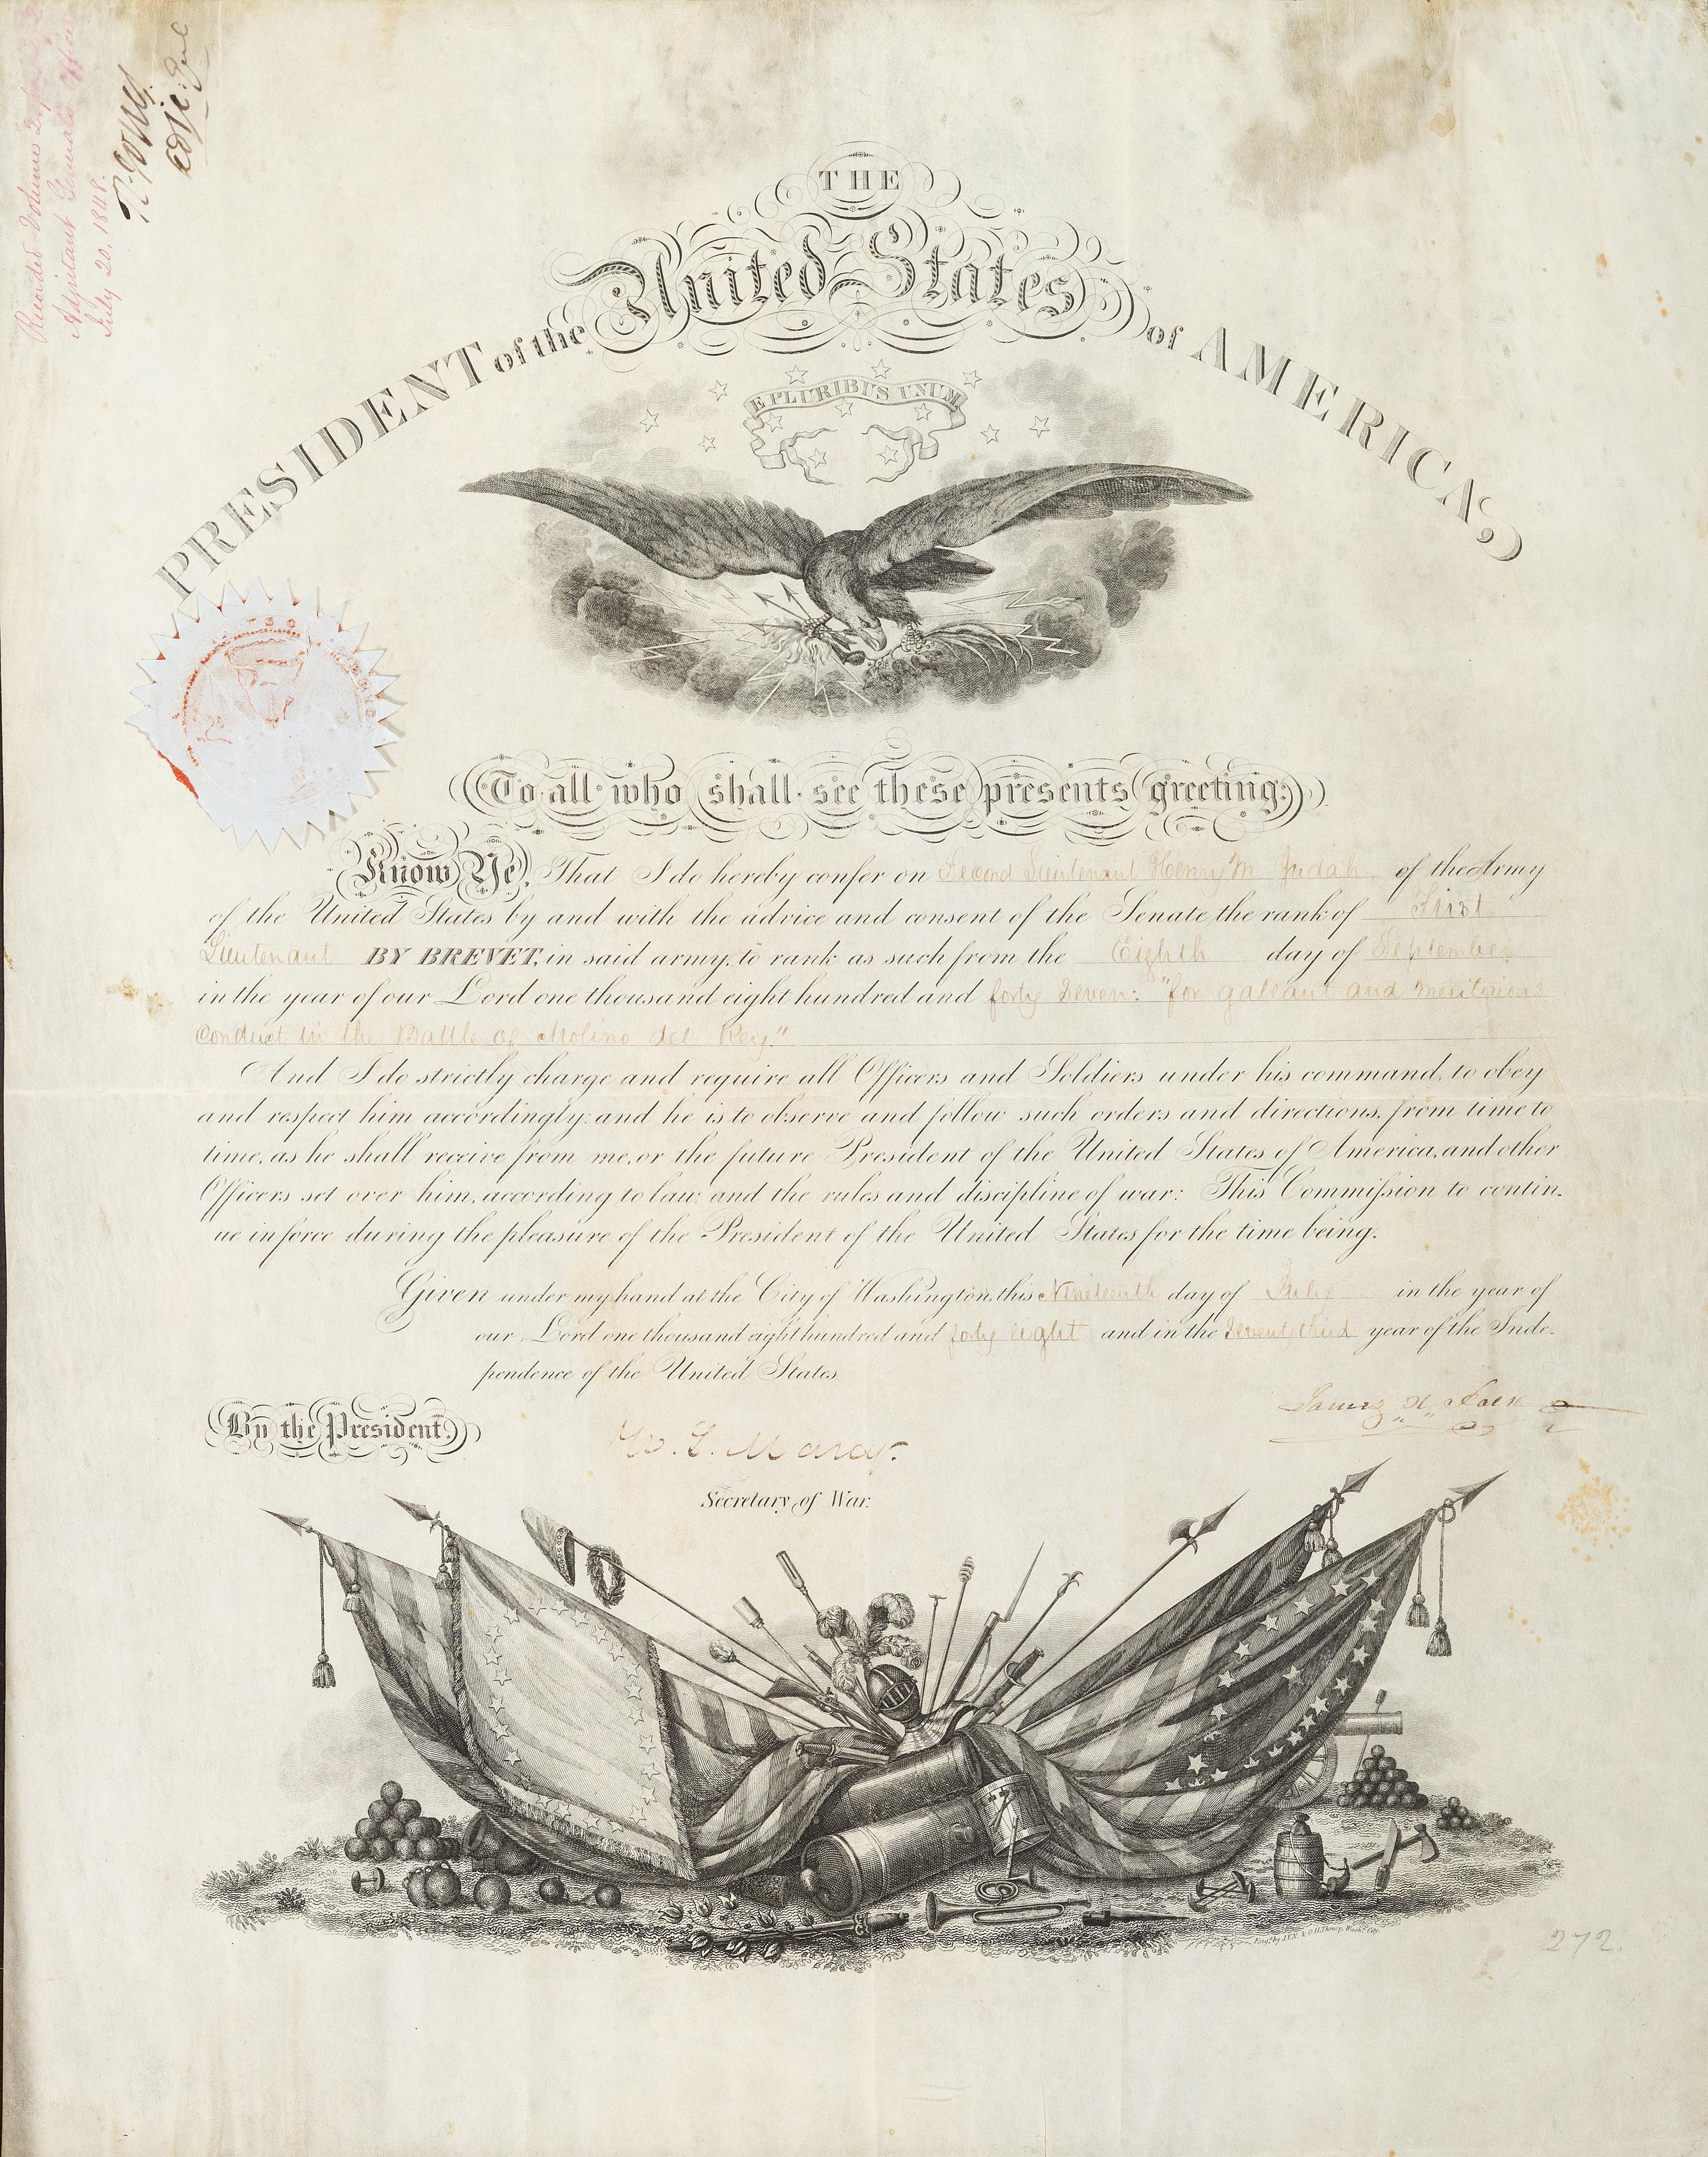 Recorded Volume 2
Adjutant General's Office
July 20. 1848.
R. Jones
Adj. Genl
THE
PRESIDENT of the United States of AMERICA,
E PLURIBUS UNUM
To all who shall see these presents greeting:
Know Ye, That I do hereby confer on Second Lieutenant Henry M Judah, of the Army
of the United States by and with the advice and consent of the Senate, the rank of First
Lieutenant BY BREVET, in said army, to rank as such from the Eighth day of September
in the year of our Lord one thousand eight hundred and forty Seven: "for gallant and meritorious
conduct in the Battle of Molino del Rey."
And I do strictly charge and require all Officers and Soldiers under his command, to obey
and respect him accordingly: and he is to observe and follow such orders and directions, from time to
time, as he shall receive from me, or the future President of the United States of America, and other
Officers set over him, according to law; and the rules and discipline of war: This Commission to contin-
ue in force during the pleasure of the President of the United States for the time being.
Given under my hand at the City of Washington, this Nineteenth day of July in the year of
our Lord one thousand eight hundred and forty eight and in the Seventy third year of the Inde-
pendence of the United States.
James K Polk
By the President,
W. L. Marcy.
Secretary of War.
Engd. by J.V.N. & O.H. Throop, Washn. City.
272.